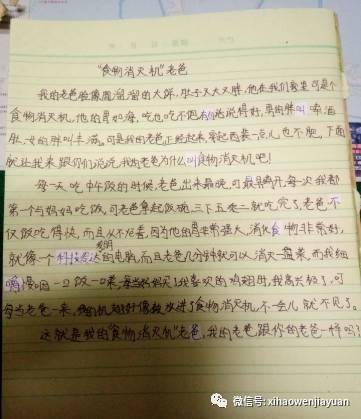 "食物消灭机"老爸
我的老爸脸像圆溜溜的大饼,肚子又大又胖,他在我们家里可是个
食物消灭机,他的胃如海,吃也吃不饱,俗话说得好,男的胖叫啤酒
肚,女的胖叫丰满。可是我的老爸正经起来,穿起西装一点儿也不胖,下面
就让我来跟你们说说我的老爸为什么叫食物消灭机吧!
每一天吃中午饭的时候,老爸出来最晚,可最早离开,每次我都
第一个与妈妈吃饭,可老爸拿起饭碗,三下五去二就吃完了,老爸不
仅饭吃得快,而且从不挑食,因为他的胃非常强大,消化食物非常好,
就像个科技发达的电脑,而且老爸几分钟就可以消灭一盘菜,而我细
嚼慢咽一口饭一口菜,每当妈妈买了我喜欢的鸡翅,我高兴极了,可
每当老爸一来,鸡翅就好像放进了食物消灭机,不一会儿就不见了。
这就是我的"食物消灭机"老爸,我的老爸跟你的老爸一样吗?
微信号: xihaowenjiayuan